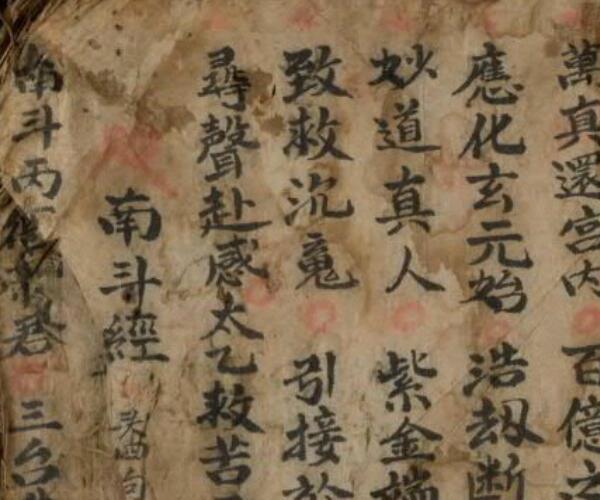 萬真還宮内百億
應化玄元始浩劫断
妙道真人紫金
致救沉魂引接於
尋聲赴感太乙救苦
南斗經
南斗丙君三台